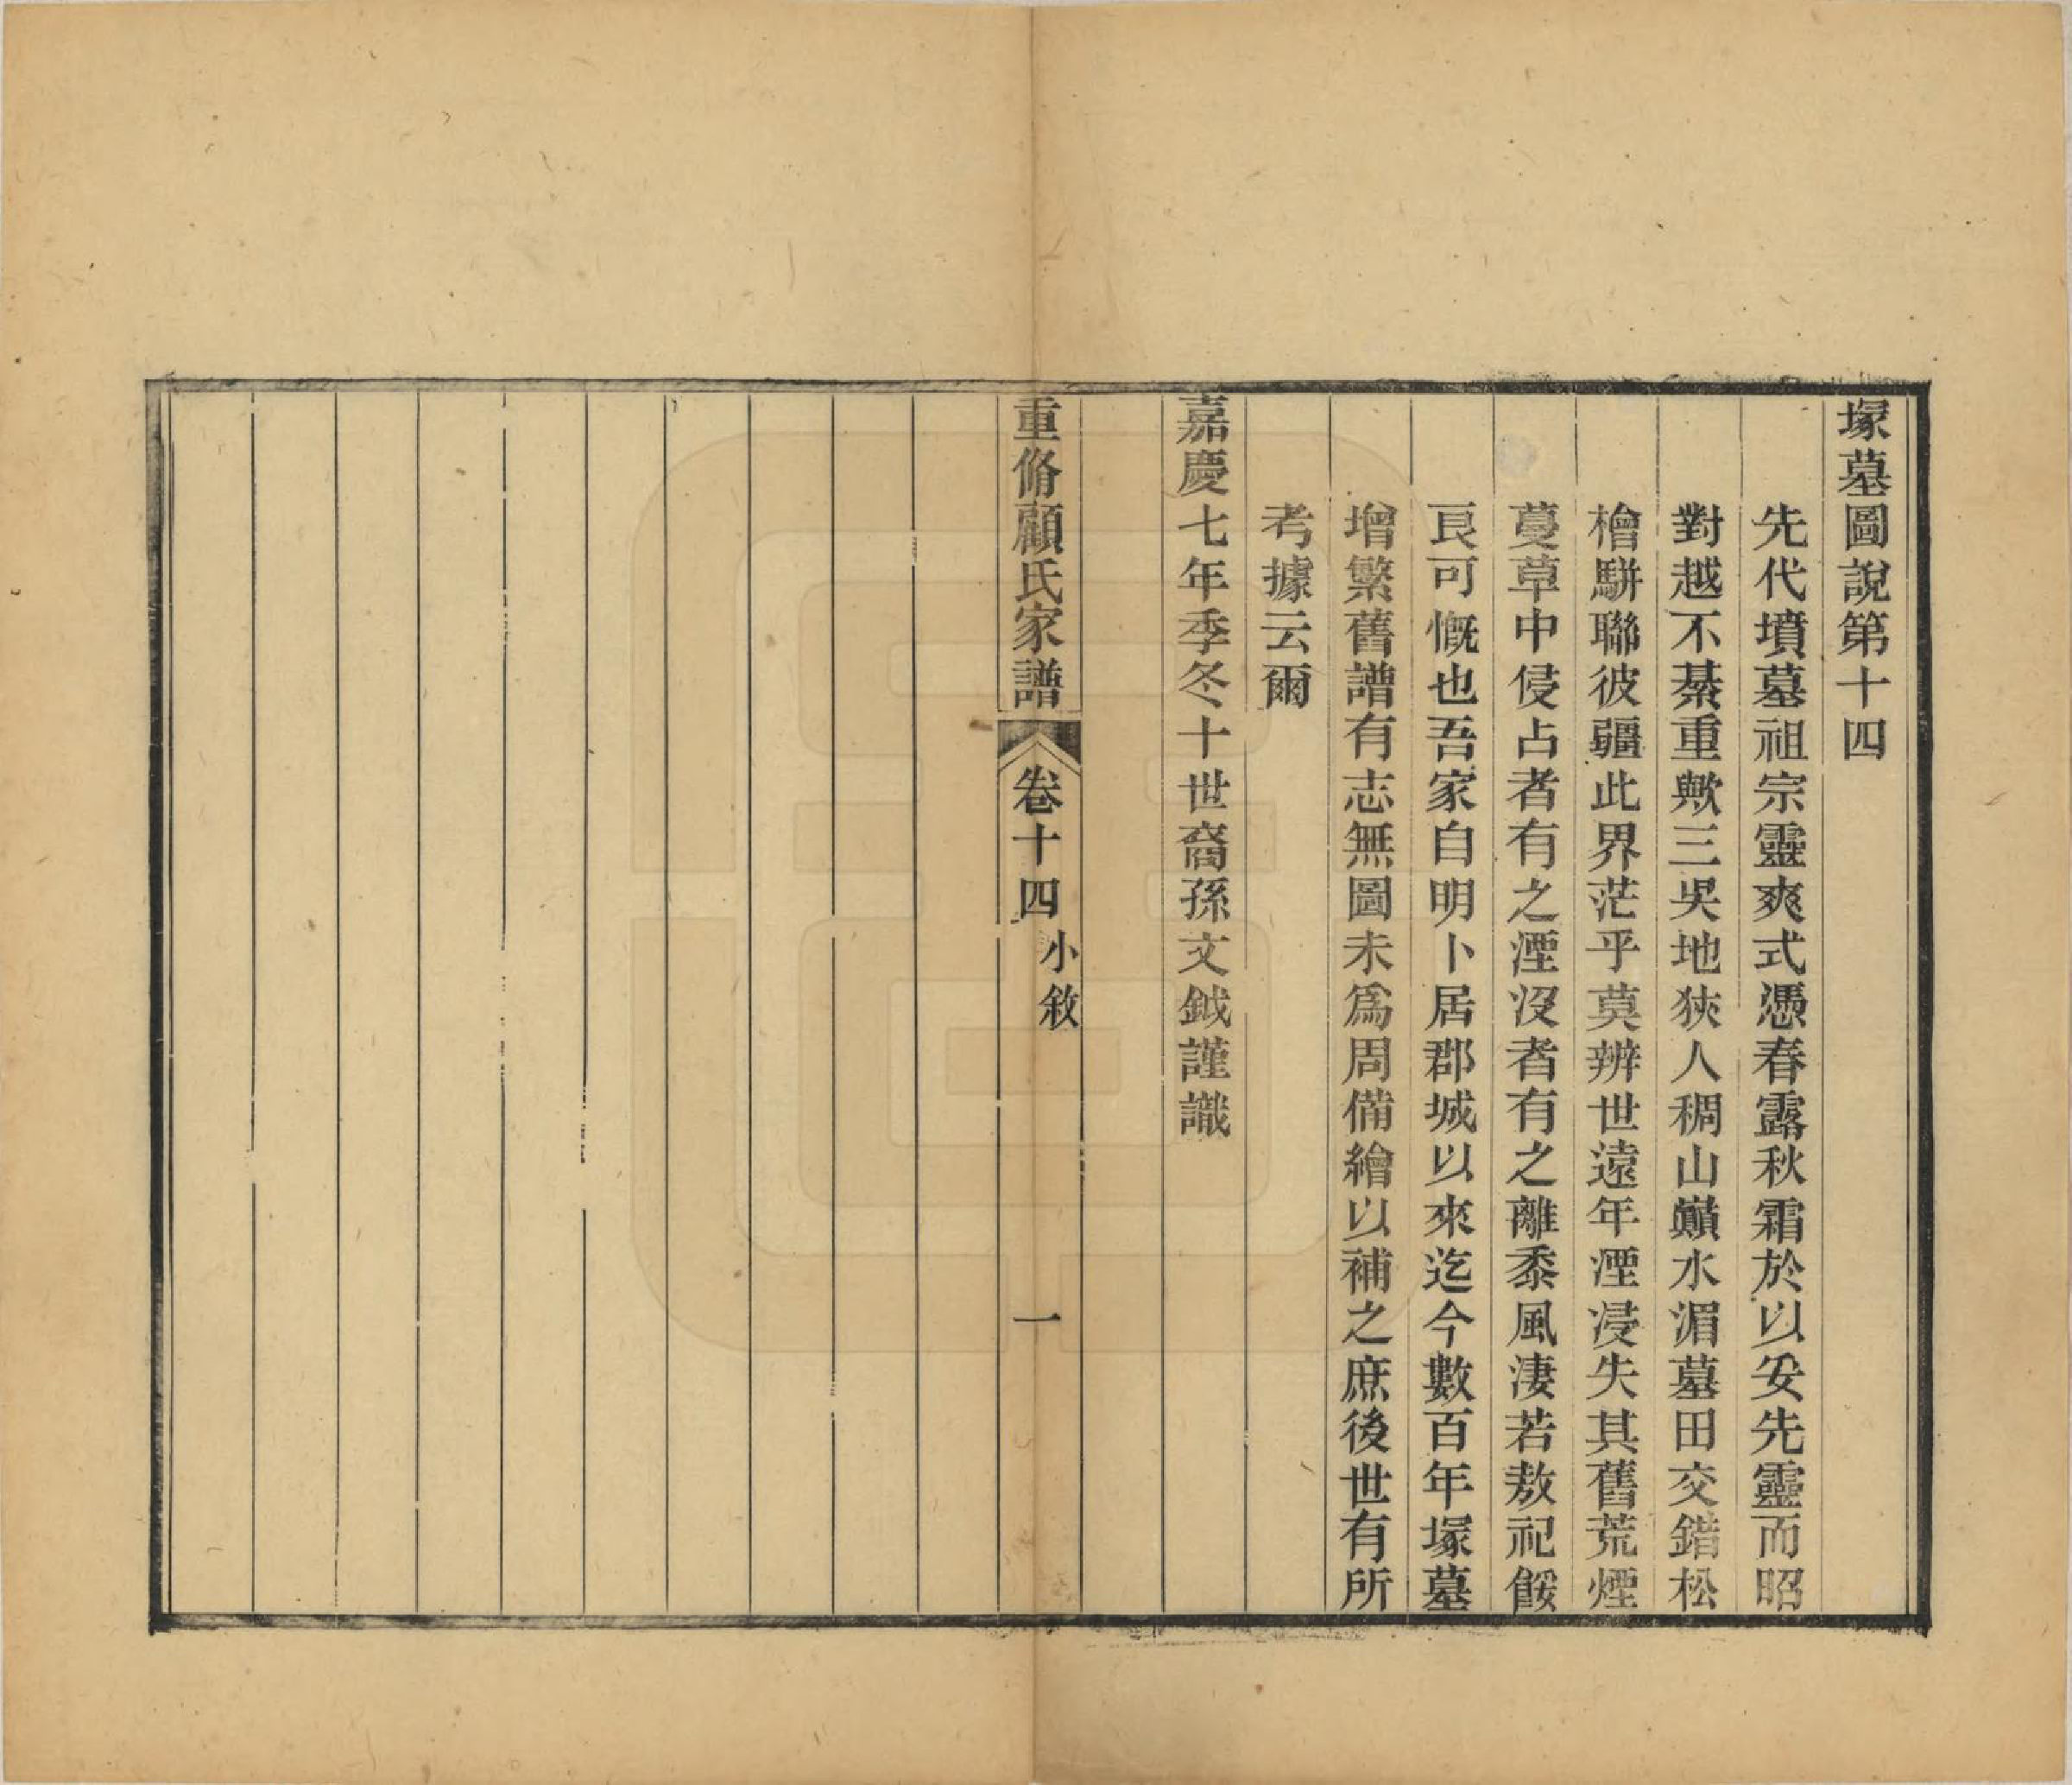 塚墓圖說第十四
先代墳墓祖宗靈爽式憑春露秋霜於以安先靈而昭
對越不綦重歟三吳地狹人稠山巔水湄墓田交錯松
檜駢聯彼疆此界茫乎莫辨世遠年湮浸失其舊荒煙
蔓草中侵占者有之湮沒者有之離黍風淒若敖祀餒
良可慨也吾家自明卜居郡城以來迄今數百年塚墓
增繁舊譜有志無圖未爲周備繪以補之庶後世有所
考據云爾
嘉慶七年季冬十世裔孫文鉞謹識
重脩顧氏家譜 卷十四 小敘 一